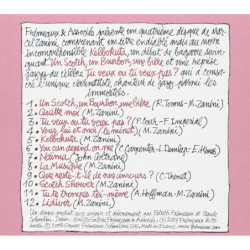 Frémeaux & Associés présente un quatrième disque de Mar-
cel Zanini, comprenant un titre endiablé mais au nom
incompréhensible Kelbokuta, un début de bizarre avinie
quant. Un Scotch, un Bourbon, une bière et une reprise
jazzy du célèbre Tu veux ou tu veux pas? qui a consa-
cré l'unique clarinettiste chanteur de jazz parmi les
Immortels.
1. Un Scotch, un Bourbon, une bière (R. Toomb - M. Zanini)
2. Quitte moi (M. Zanini)
3. Tu veux ou tu veux pas? (P. Cour - F. Imperial)
4. Vous, lui et moi (le minet) (M. Zanini)
5. Kelbokuta (M. Zanini)
6. You can depend on me (C. Carpenter - L. Dunlap - E. Hines)
7. Naima (John Coltrane)
8. La Musique (M. Zanini)
9. Que reste-t-il de nos amours? (C. Trenet)
10. Scotch Showers (M. Zanini)
11. Tu te trompes toi-même (A. Hoffman - M. Zanini)
12. Lidivot (M. Zanini)